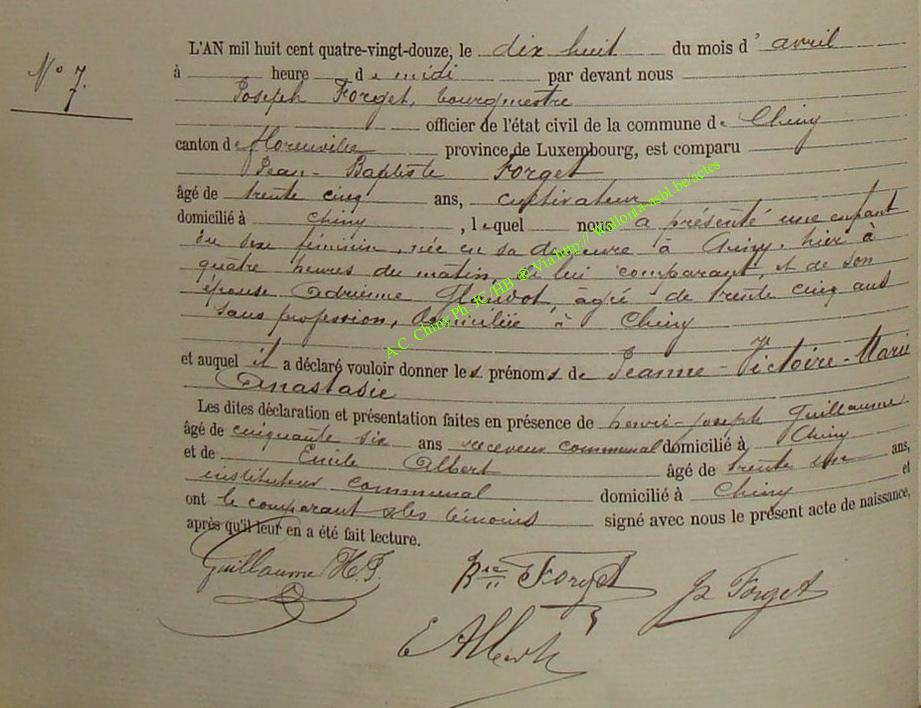 N° 7.
7
L'AN mil huit cent quatre-vingt-douze, le dix huit du mois d' avril
à heure de midi par devant nous
Joseph Forget, bourgmestre
officier de l'état civil de la commune de Chiny
canton de florenville province de Luxembourg, est comparu
Jean-Baptiste Forget
âgé de trente cinq ans, cultivateur
domicilié à Chiny, lequel nous a présenté une enfant
du sexe féminin, née en sa demeure à Chiny, hier à
quatre heures du matin, de lui comparant, et de son
épouse Adrienne agée de trente cinq ans
sans profession, domiciliée à Chiny
et auquel il a déclaré vouloir donner les prénoms de Jeanne-Victoire-Marie
Anastasie
Les dites déclaration et présentation faites en présence de henri-joseph Guillaume
âgé de cinquante six ans receveur communal domicilié à Chiny
et de Emile Albert âgé de trente un ans,
instituteur communal domicilié à Chiny et
ont le comparant & les témoins signé avec nous le présent acte de naissance,
après qu'il leur en a été fait lecture.
Guillaume H.J.
Forget
J Forget
E Albert
A.C. Chiny Ph JC/HB ® Via http:// wallonia-asbl.be/actes